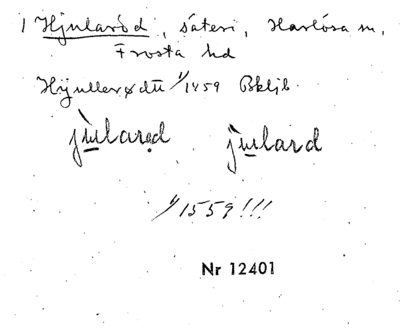 1 Hjularöd, säteri, Harlösa sn,
Frosta hd
Hijullerødtt 1/1459 Bkljb.
jùlarød jùlard
1/1559!!!
Nr 12401